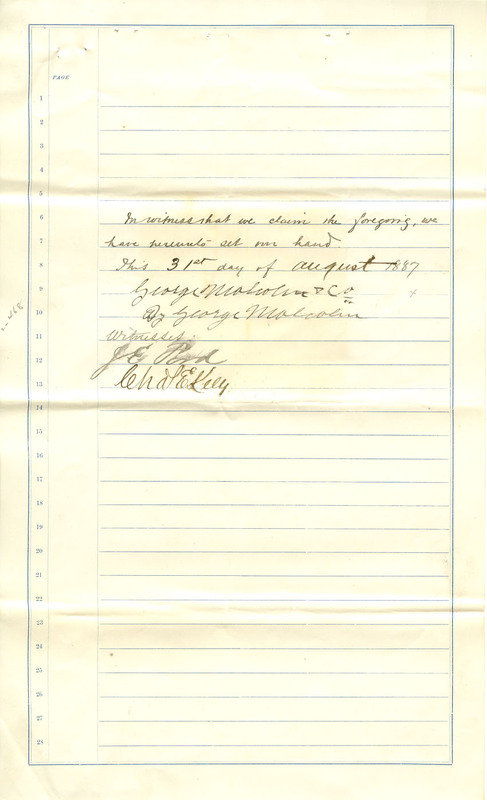 PAGE
1
2
3
4
5
6 In witness that we claim the foregoing, we
7 have hereunto set our hand.
8 This 31st day of August 1887
9 George Malcolm & Co
10 By George Malcolm
11 Witnesses:
12 J. E.
13 Chas E Kelly
14
15
16
17
18
19
20
21
22
23
24
25
26
27
28